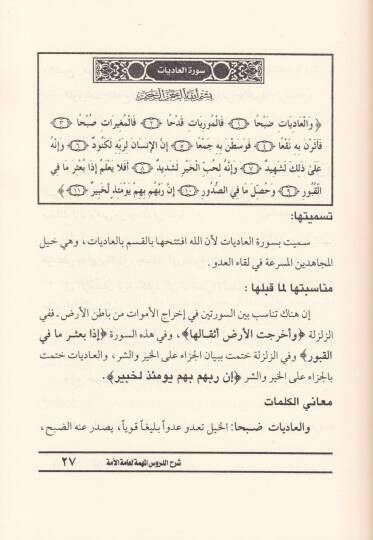 سورة العاديات
بسم الله الرحمن الرحيم
﴿ وَالْعَادِيَاتِ ضَبْحًا ﴿١﴾ فَالْمُورِيَاتِ قَدْحًا ﴿٢﴾ فَالْمُغِيرَاتِ صُبْحًا ﴿٣﴾
فَأَثَرْنَ بِهِ نَقْعًا ﴿٤﴾ فَوَسَطْنَ بِهِ جَمْعًا ﴿٥﴾ إِنَّ الْإِنسَانَ لِرَبِّهِ لَكَنُودٌ ﴿٦﴾ وَإِنَّهُ
عَلَىٰ ذَٰلِكَ لَشَهِيدٌ ﴿٧﴾ وَإِنَّهُ لِحُبِّ الْخَيْرِ لَشَدِيدٌ ﴿٨﴾ أَفَلَا يَعْلَمُ إِذَا بُعْثِرَ مَا فِي
الْقُبُورِ ﴿٩﴾ وَحُصِّلَ مَا فِي الصُّدُورِ ﴿١٠﴾ إِنَّ رَبَّهُم بِهِمْ يَوْمَئِذٍ لَّخَبِيرٌ ﴿١١﴾ ﴾
تسميتها:
سميت بسورة العاديات لأن الله افتتحها بالقسم بالعاديات، وهي خيل
المجاهدين المسرعة في لقاء العدو.
مناسبتها لما قبلها :
إن هناك تناسب بين السورتين في إخراج الأموات من باطن الأرض ـ ففي
الزلزلة ﴿وأخرجت الأرض أثقالها﴾، وفي هذه السورة ﴿إذا بعثر ما في
القبور﴾ وفي الزلزلة ختمت ببيان الجزاء على الخير والشر، والعاديات ختمت
بالجزاء على الخير والشر ﴿إن ربهم بهم يومئذ لخبير﴾.
معاني الكلمات
والعاديات ضبحا: الخيل تعدو عدواً بليغاً قوياً، يصدر عنه الضبح،
شرح الدروس المهمة لعامة الأمة ٢٧